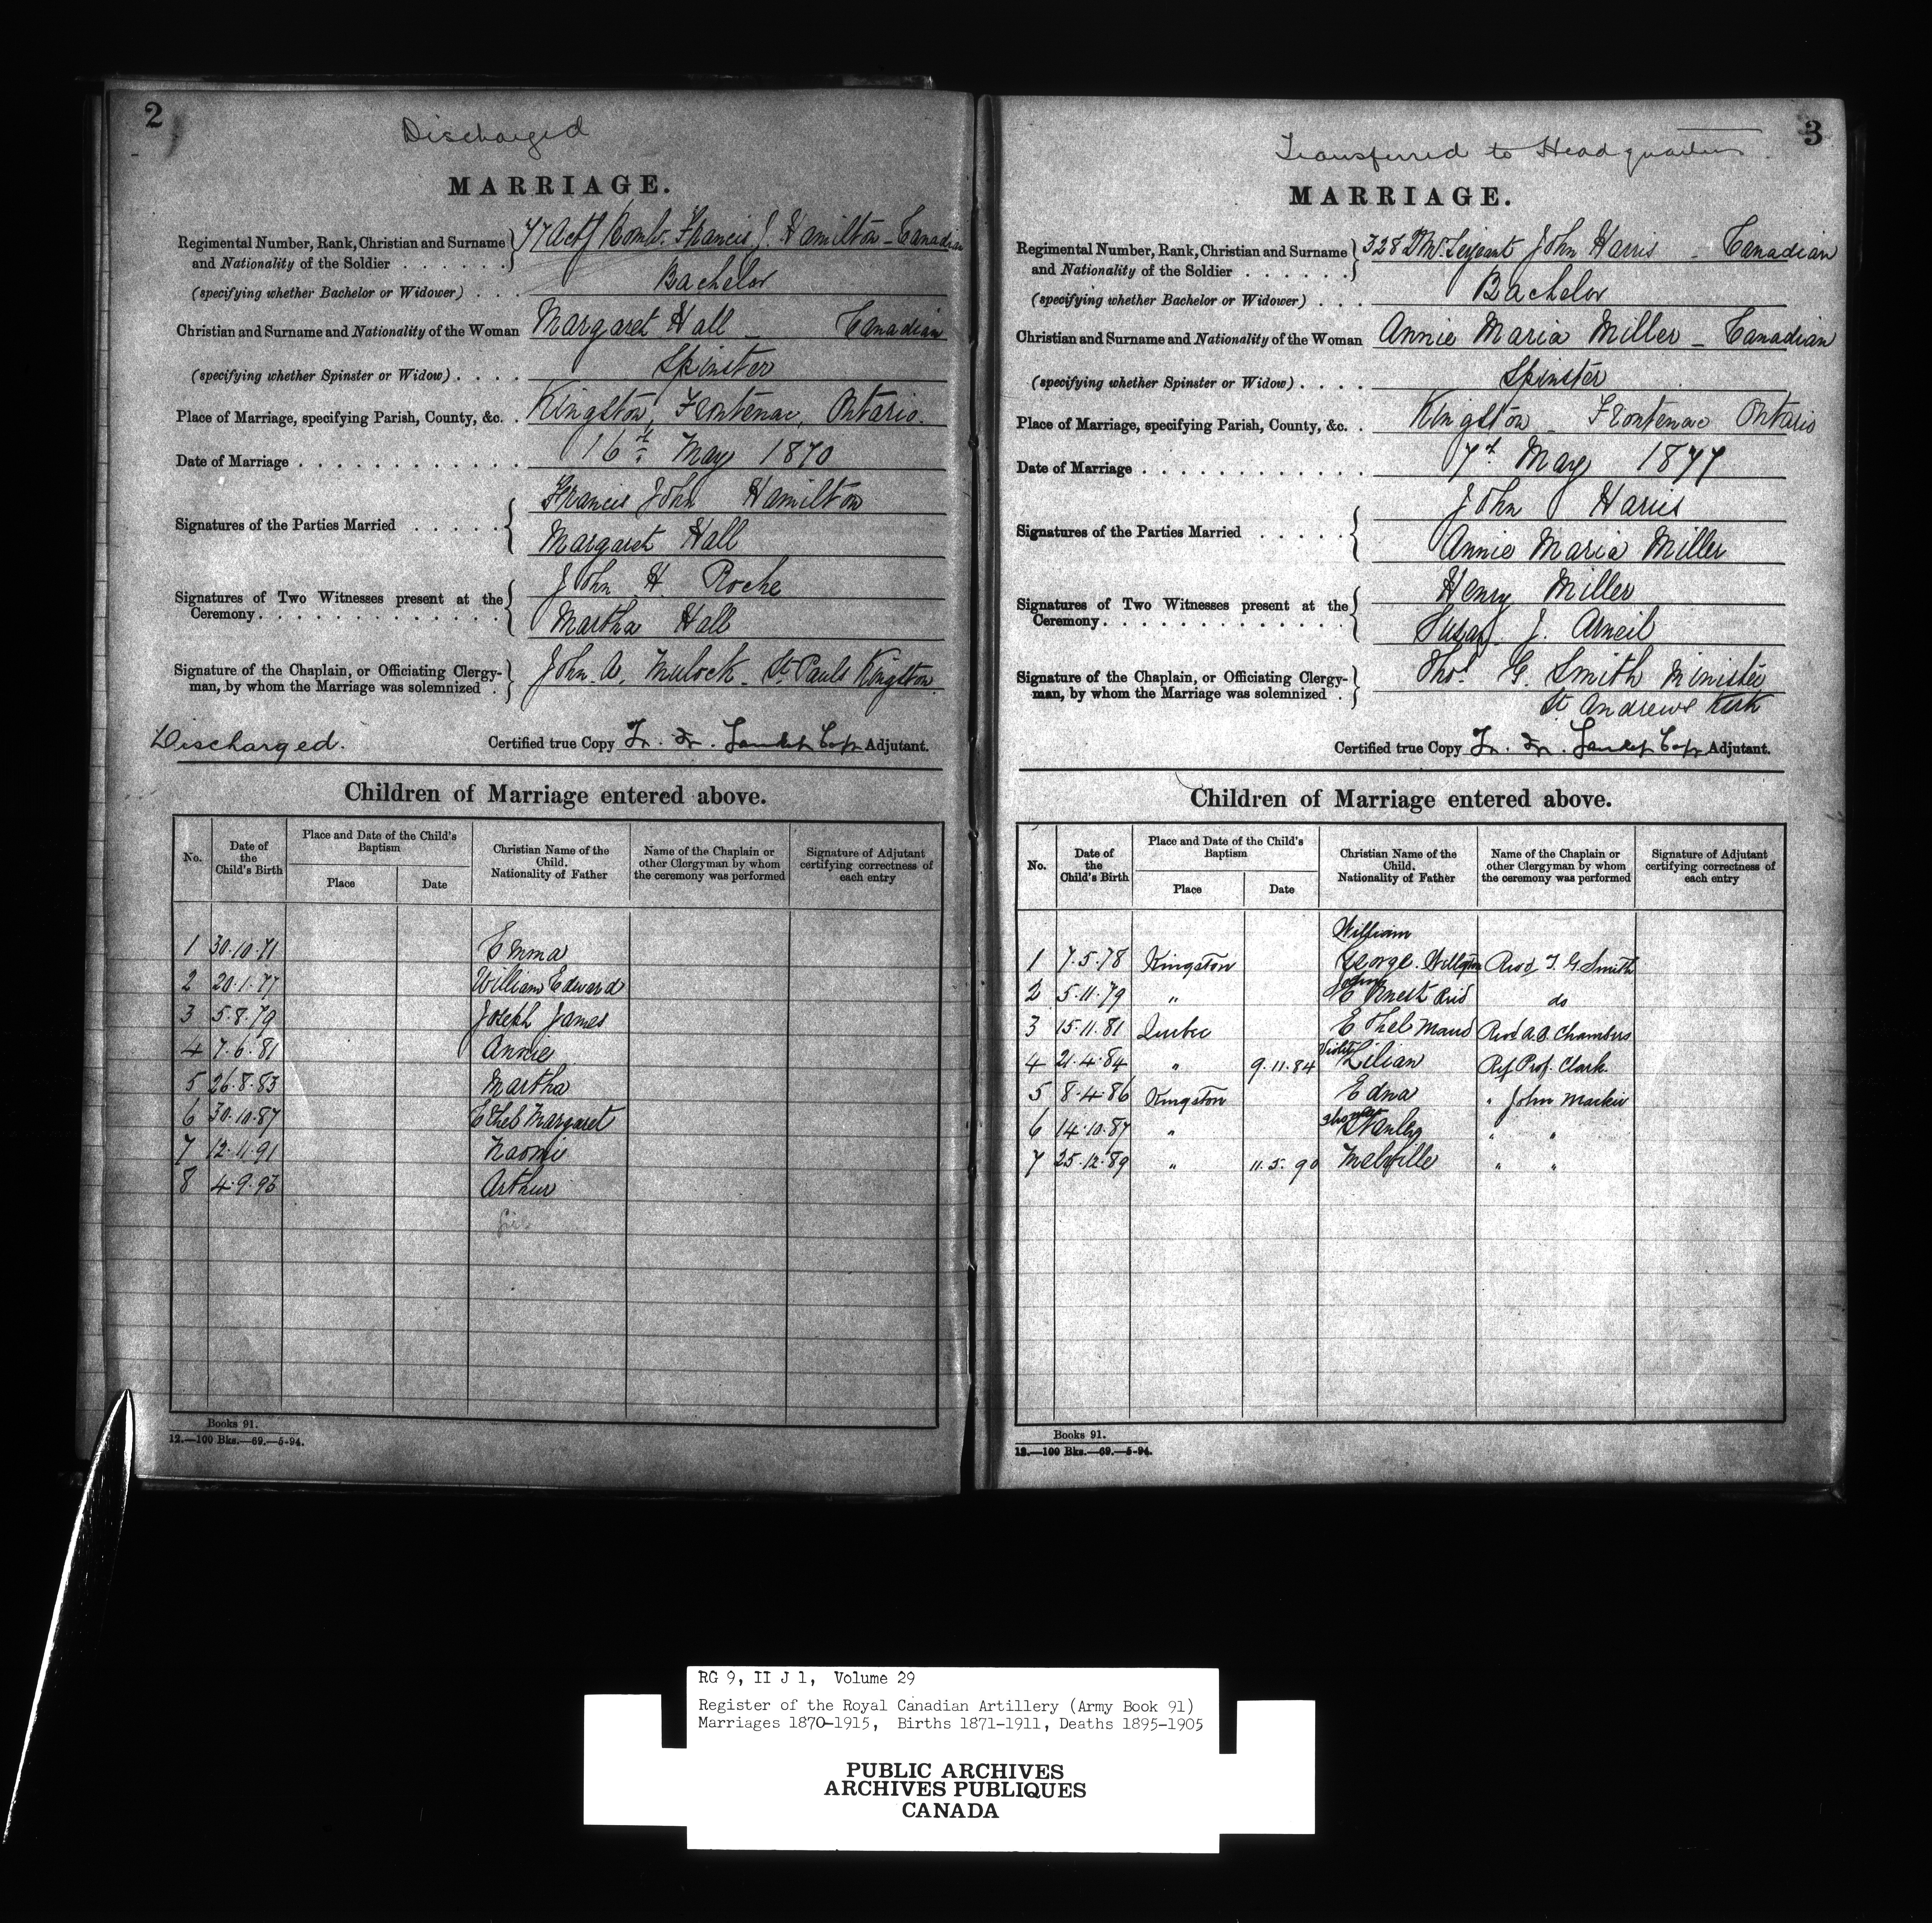 2
Discharged
MARRIAGE.
Regimental Number, Rank, Christian and Surname and Nationality of the Soldier . . . . . . . 47 Actg Bombr. Francis J. Hamilton - Canadian
(specifying whether Bachelor or Widower) . . . Bachelor
Christian and Surname and Nationality of the Woman Margaret Hall - Canadian
(specifying whether Spinster or Widow) . . . . Spinster
Place of Marriage, specifying Parish, County, &c. . Kingston, Frontenac, Ontario.
Date of Marriage . . . . . . . . . . . . . 16th May 1870
Signatures of the Parties Married . . . . . Francis John Hamilton
Margaret Hall
Signatures of Two Witnesses present at the Ceremony . . . . . . . . . . . . . John H. Roche
Martha Hall
Signature of the Chaplain, or Officiating Clergy-man, by whom the Marriage was solemnized . John A. Mulock - St Pauls Kingston
Discharged.
Certified true Copy Adjutant.
Children of Marriage entered above.
No. Date of the Child's Birth Place and Date of the Child's Baptism Place Date Christian Name of the Child. Nationality of Father Name of the Chaplain or other Clergyman by whom the ceremony was performed Signature of Adjutant certifying correctness of each entry
1 30.10.71 Emma
2 20.1.77 William Edward
3 5.8.79 Joseph James
4 7.6.81 Annie
5 26.8.83 Martha
6 30.10.87 Ethel Margaret
7 12.11.91 Naomi
8 4.9.93 Arthur
Books 91.
12.—100 Bks.—69.—5-94.
3
Transferred to Headquarters
MARRIAGE.
Regimental Number, Rank, Christian and Surname and Nationality of the Soldier . . . . . . 328 Sergeant John Harris - Canadian
(specifying whether Bachelor or Widower) . . . Bachelor
Christian and Surname and Nationality of the Woman Annie Maria Miller - Canadian
(specifying whether Spinster or Widow) . . . . Spinster
Place of Marriage, specifying Parish, County, &c. . Kingston - Frontenac Ontario
Date of Marriage . . . . . . . . . . . . 7th May 1877
Signatures of the Parties Married . . . . . John Harris
Annie Maria Miller
Signatures of Two Witnesses present at the Ceremony . . . . . . . . . . . . . Henry Miller
Susan J. Arneil
Signature of the Chaplain, or Officiating Clergy-man, by whom the Marriage was solemnized . Thos. G. Smith Minister
St Andrews Kirk
Certified true Copy Adjutant.
Children of Marriage entered above.
No. Date of the Child's Birth Place and Date of the Child's Baptism Place Date Christian Name of the Child. Nationality of Father Name of the Chaplain or other Clergyman by whom the ceremony was performed Signature of Adjutant certifying correctness of each entry
William
1 7.5.78 Kingston George Revd T. G. Smith
2 5.11.79 " Ernest Reid do
3 15.11.81 Quebec Ethel Maud Revd A. B. Chambers
4 21.4.84 " 9.11.84 Violet Lilian Prof. Clark
5 8.4.86 Kingston Edna " John Mackie
6 14.10.87 " Stanley " "
7 25.12.89 " 11.5.90 Melville " "
Books 91.
12.—100 Bks.—69.—5-94.
RG 9, II J 1, Volume 29
Register of the Royal Canadian Artillery (Army Book 91)
Marriages 1870-1915, Births 1871-1911, Deaths 1895-1905
PUBLIC ARCHIVES
ARCHIVES PUBLIQUES
CANADA